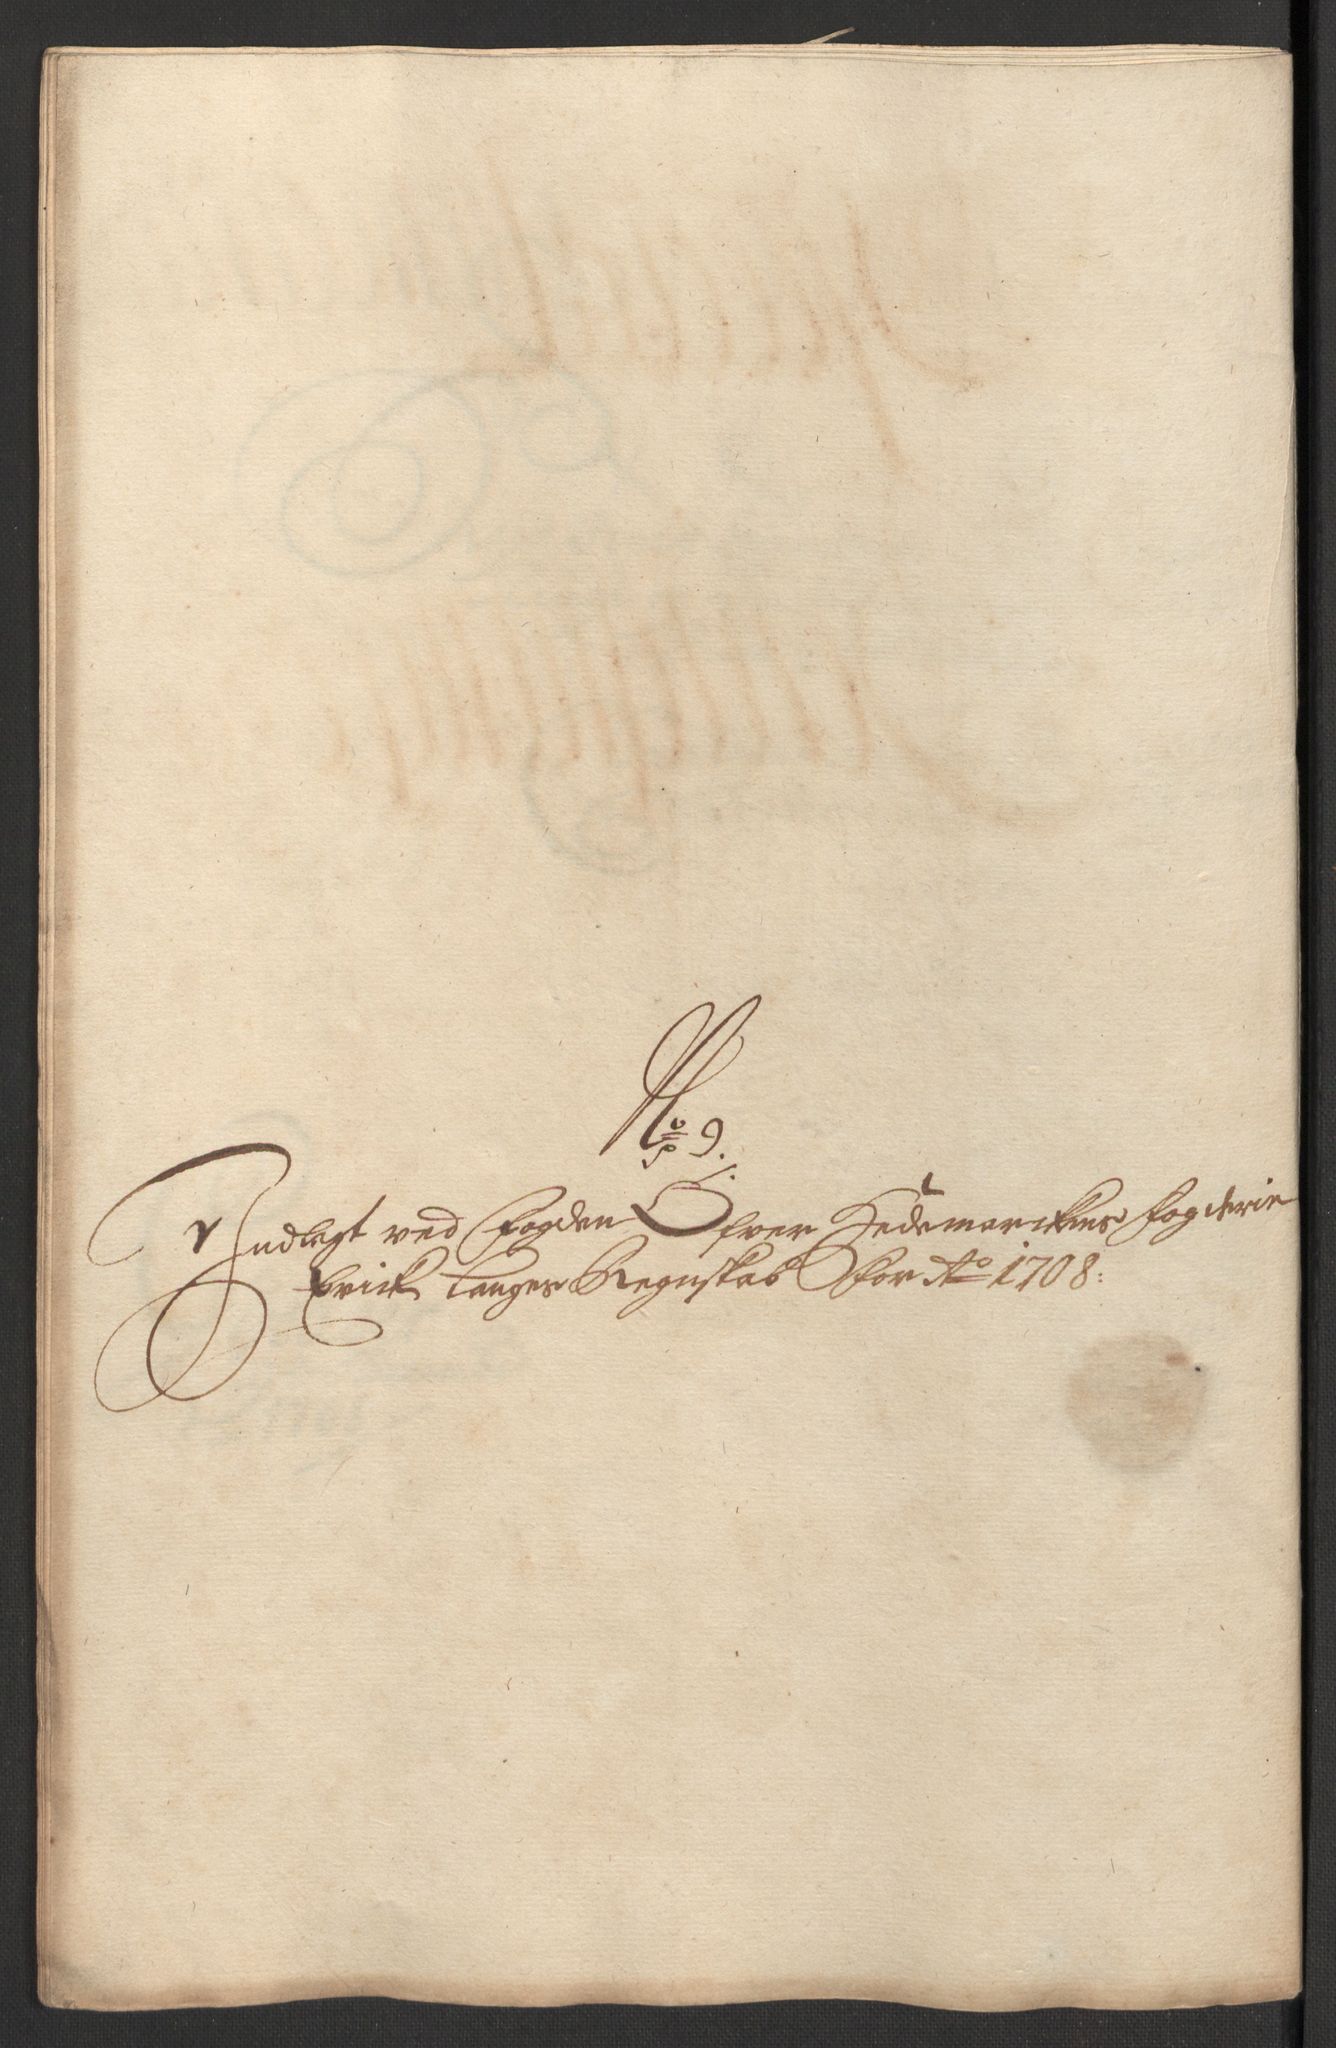 No 9.
Indlagt ved Fogden Ofver Hedemarckens Fogderie
Erich Langes Regnskab for Ao 1708: